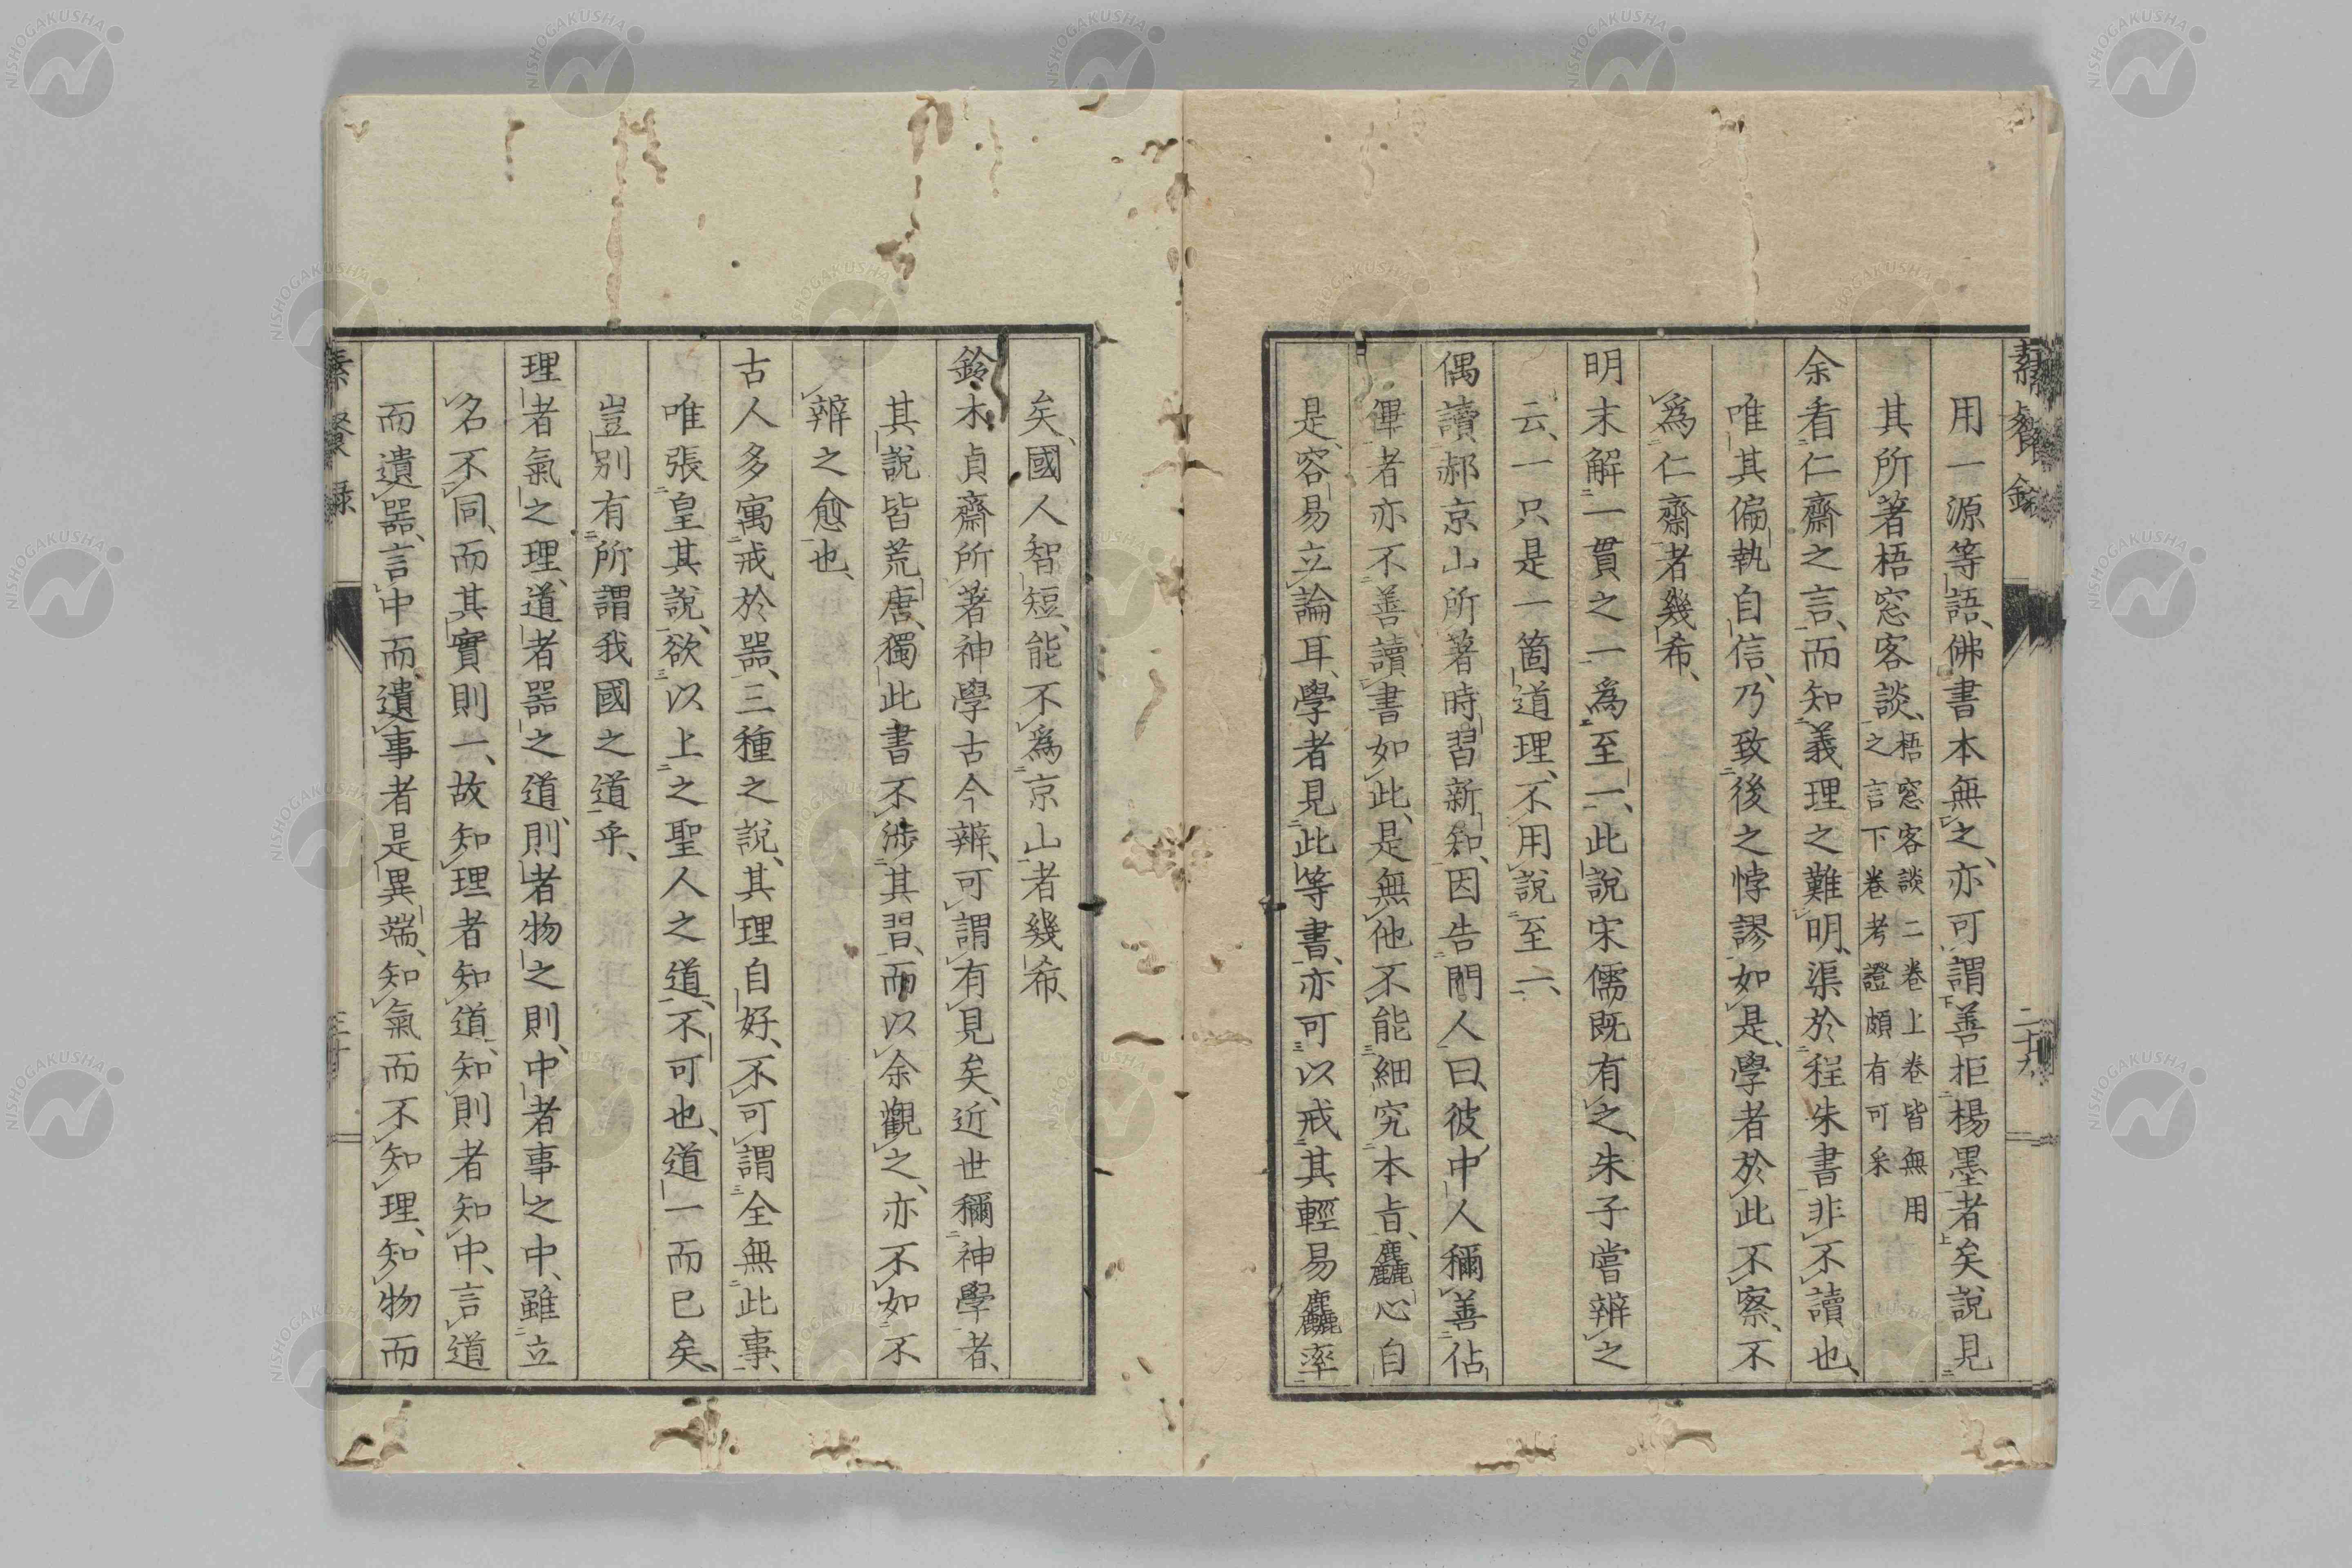 素餐錄
二十九
用一源等語、佛書本無之、亦可謂善拒楊墨者矣說見
其所著梧窓客談、梧窓客談二卷上卷皆無用
之言下卷考證頗有可采
余看仁齋之言、而知義理之難明、渠於程朱書非不讀也、
唯其偏執自信、乃致後之悖謬如是、學者於此不察、不
為仁齋者幾希、
明末解一貫之一為至一、此說宋儒既有之、朱子嘗辨之
云、一只是一箇道理、不用說至一、
偶讀郝京山所著時習新知、因告門人曰、彼中人稱善佔
僤者亦不善讀書如此、是無他不能細究本旨、麤心自
是、容易立論耳、學者見此等書、亦可以戒其輕易麤率
矣、國人智短、能不為京山者幾希、
鈴木貞齋所著神學古今辨、可謂有見矣、近世稱神學者、
其說皆荒唐、獨此書不涉其習、而以余觀之、亦不如不
辨之愈也、
古人多寓戒於器、三種之說、其理自好、不可謂全無此事、
唯張皇其說、欲以上之聖人之道、不可也、道一而已矣、
豈別有所謂我國之道乎、
理者氣之理、道者器之道、則者物之則、中者事之中、雖立
名不同、而其實則一、故知理者知道、知則者知中、言道
而遺器、言中而遺事者是異端、知氣而不知理、知物而
素餐録
三十